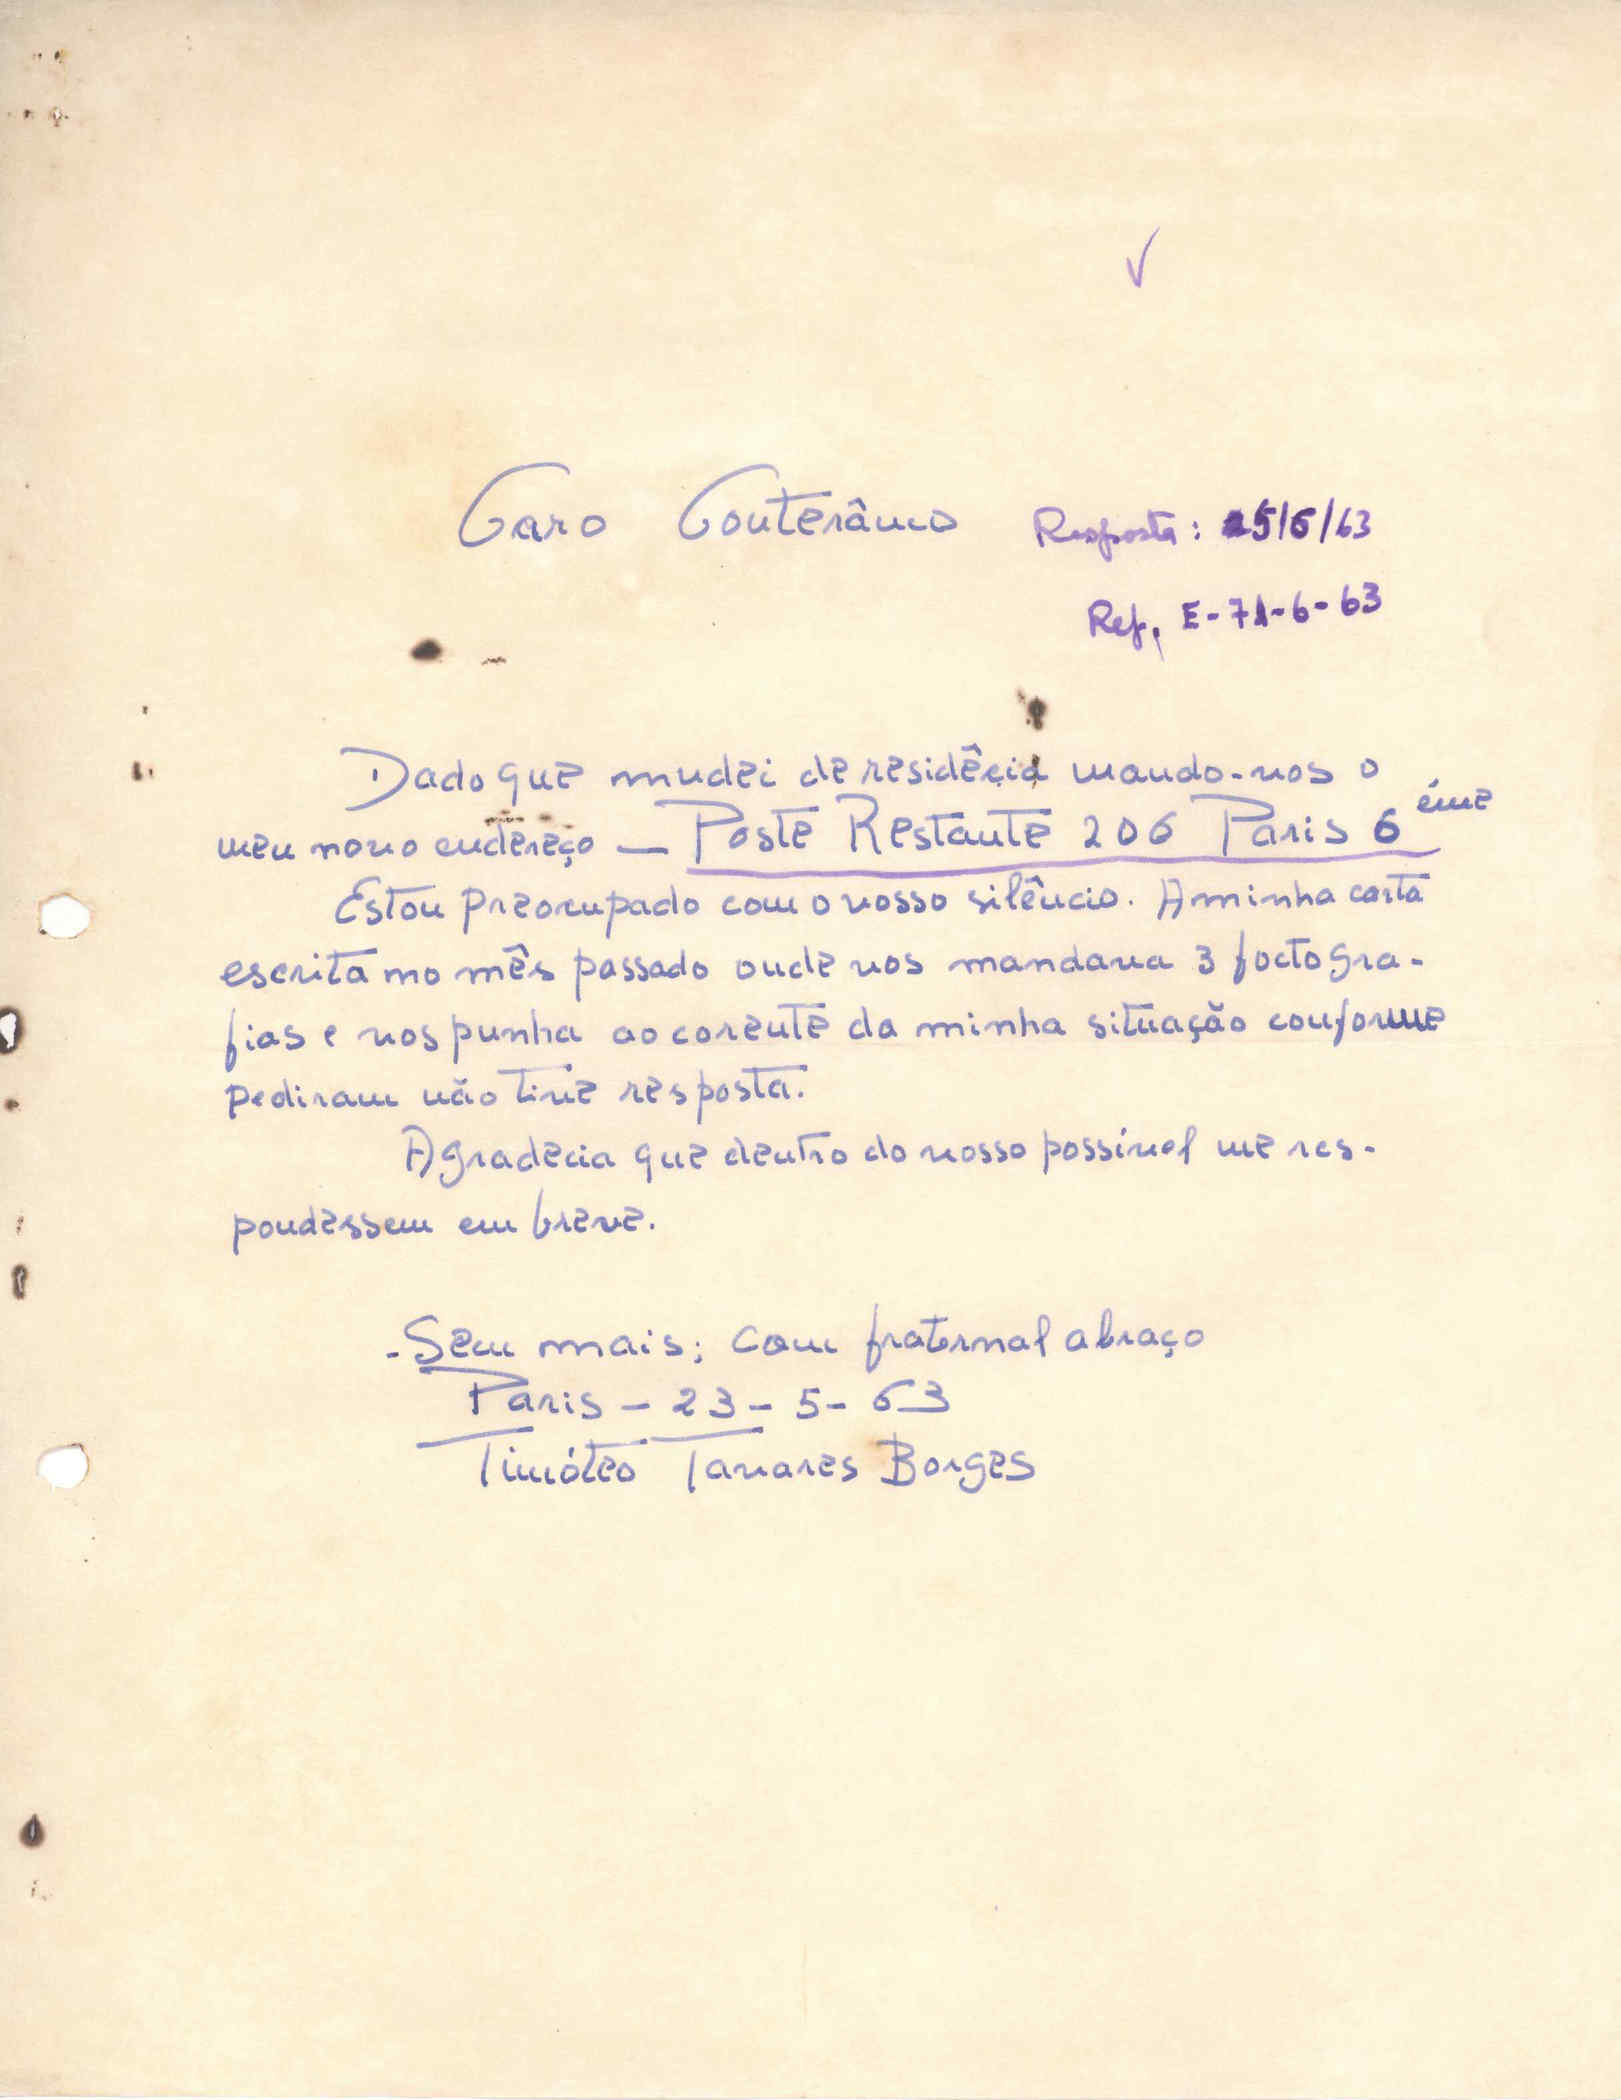 Caro Conterâneo
Resposta: 25/6/63
Ref. E-71-6-63
Dado que mudei de residêcia mando-vos o
meu novo endereço — Poste Restante 206 Paris 6 éme
Estou preocupado com o vosso silêncio. A minha carta
escrita no mês passado onde vos mandava 3 foctogra-
fias e vos punha ao corente da minha situação conforme
pediram não tive resposta.
Agradecia que dentro do vosso possivel me res-
pondessem em breve.
-Sem mais; com fraternal abraço
Paris - 23 - 5 - 63
Timóteo Tavares Borges